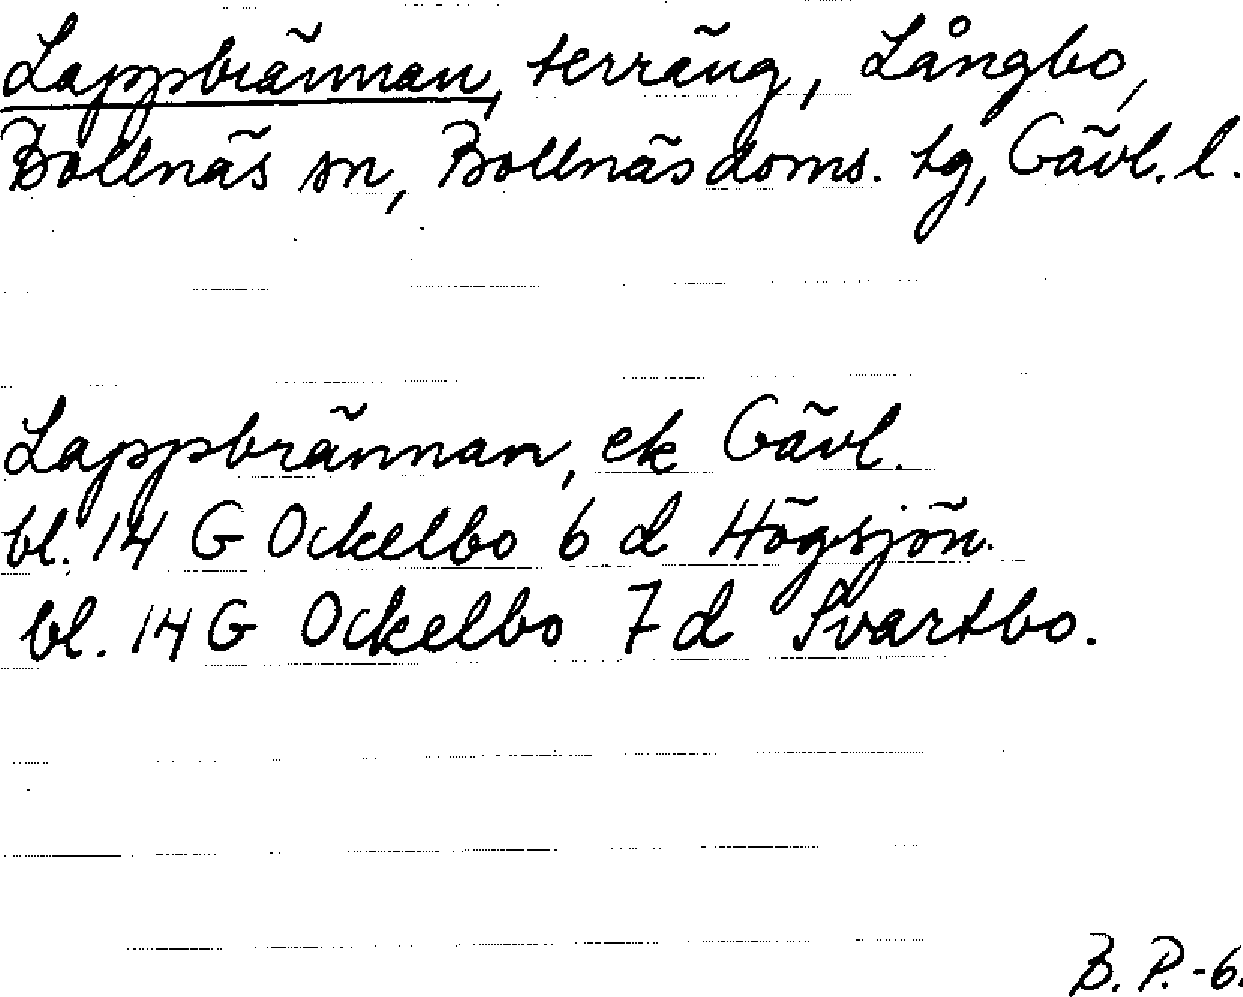 Lappbrännan, terräng, Långbo,
Bollnäs sn, Bollnäs doms. tg, Gävl. l.
Lappbrännan, ek Gävl.
bl. 14 G Ockelbo 6 d Högsjön.
bl. 14 G Ockelbo 7 d Svartbo.
B. P. -6.